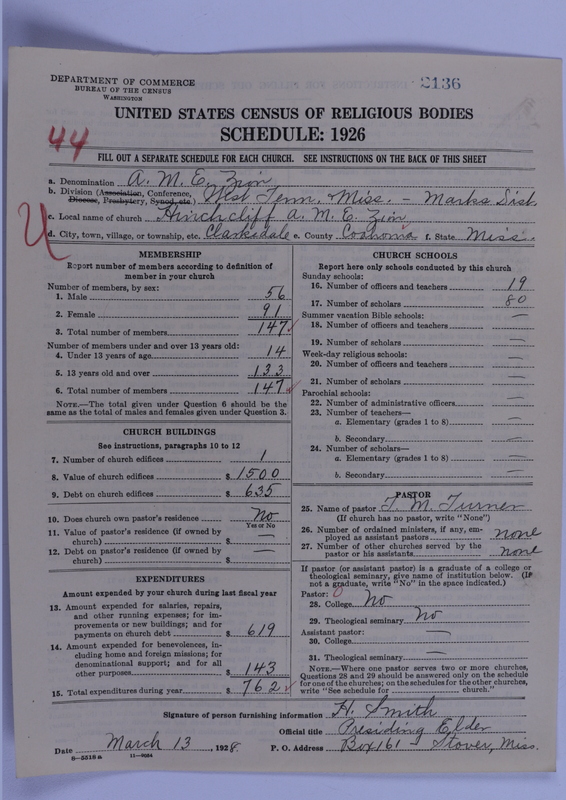 DEPARTMENT OF COMMERCE
BUREAU OF THE CENSUS
WASHINGTON
2136
UNITED STATES CENSUS OF RELIGIOUS BODIES
SCHEDULE: 1926
44
FILL OUT A SEPARATE SCHEDULE FOR EACH CHURCH. SEE INSTRUCTIONS ON THE BACK OF THIS SHEET
a. Denomination A. M. E. Zion
b. Division (Association, Conference, Diocese, Presbytery, Synod, etc.) West Tenn. Miss. - Marks Dist.
c. Local name of church Hinchcliff A. M. E. Zion
d. City, town, village, or township, etc. Clarksdale e. County Coahoma f. State Miss.
MEMBERSHIP
Report number of members according to definition of
member in your church
Number of members, by sex:
1. Male 56
2. Female 91
3. Total number of members 147
Number of members under and over 13 years old:
4. Under 13 years of age 14
5. 13 years old and over 133
6. Total number of members 147
NOTE.—The total given under Question 6 should be
same as the total of males and females given under Question 3.
CHURCH BUILDINGS
See instructions, paragraphs 10 to 12
7. Number of church edifices 1
8. Value of church edifices $ 1500
9. Debt on church edifices $ 635
10. Does church own pastor's residence No
Yes or No
11. Value of pastor's residence (if owned by
church) $ —
12. Debt on pastor's residence (if owned by
church) $ —
EXPENDITURES
Amount expended by your church during last fiscal year
13. Amount expended for salaries, repairs,
and other running expenses; for im-
provements or new buildings; and for
payments on church debt $ 619
14. Amount expended for benevolences, in-
cluding home and foreign missions; for
denominational support; and for all
other purposes $ 143
15. Total expenditures during year $ 762
CHURCH SCHOOLS
Report here only schools conducted by this church
Sunday schools:
16. Number of officers and teachers 19
17. Number of scholars 80
Summer vacation Bible schools:
18. Number of officers and teachers —
19. Number of scholars —
Week-day religious schools:
20. Number of officers and teachers —
21. Number of scholars —
Parochial schools:
22. Number of administrative officers —
23. Number of teachers—
a. Elementary (grades 1 to 8) —
b. Secondary —
24. Number of scholars—
a. Elementary (grades 1 to 8) —
b. Secondary —
PASTOR
25. Name of pastor T. M. Turner
(If church has no pastor, write "None")
26. Number of ordained ministers, if any, em-
ployed as assistant pastors none
27. Number of other churches served by the
pastor or his assistants none
If pastor (or assistant pastor) is a graduate of a college or
theological seminary, give name of institution below. (If
not a graduate, write "No" in the space indicated.)
Pastor: 0
28. College No
29. Theological seminary No
Assistant pastor: —
30. College —
31. Theological seminary —
NOTE.—Where one pastor serves two or more churches,
Questions 28 and 29 should be answered only on the schedule
for one of the churches; on the schedules for the other churches,
write "See schedule for church."
Signature of person furnishing information H. Smith
Official title Presiding Elder
Date March 13, 1928. P. O. Address Box 161 - Stover, Miss.
8—5518 a 11—9064